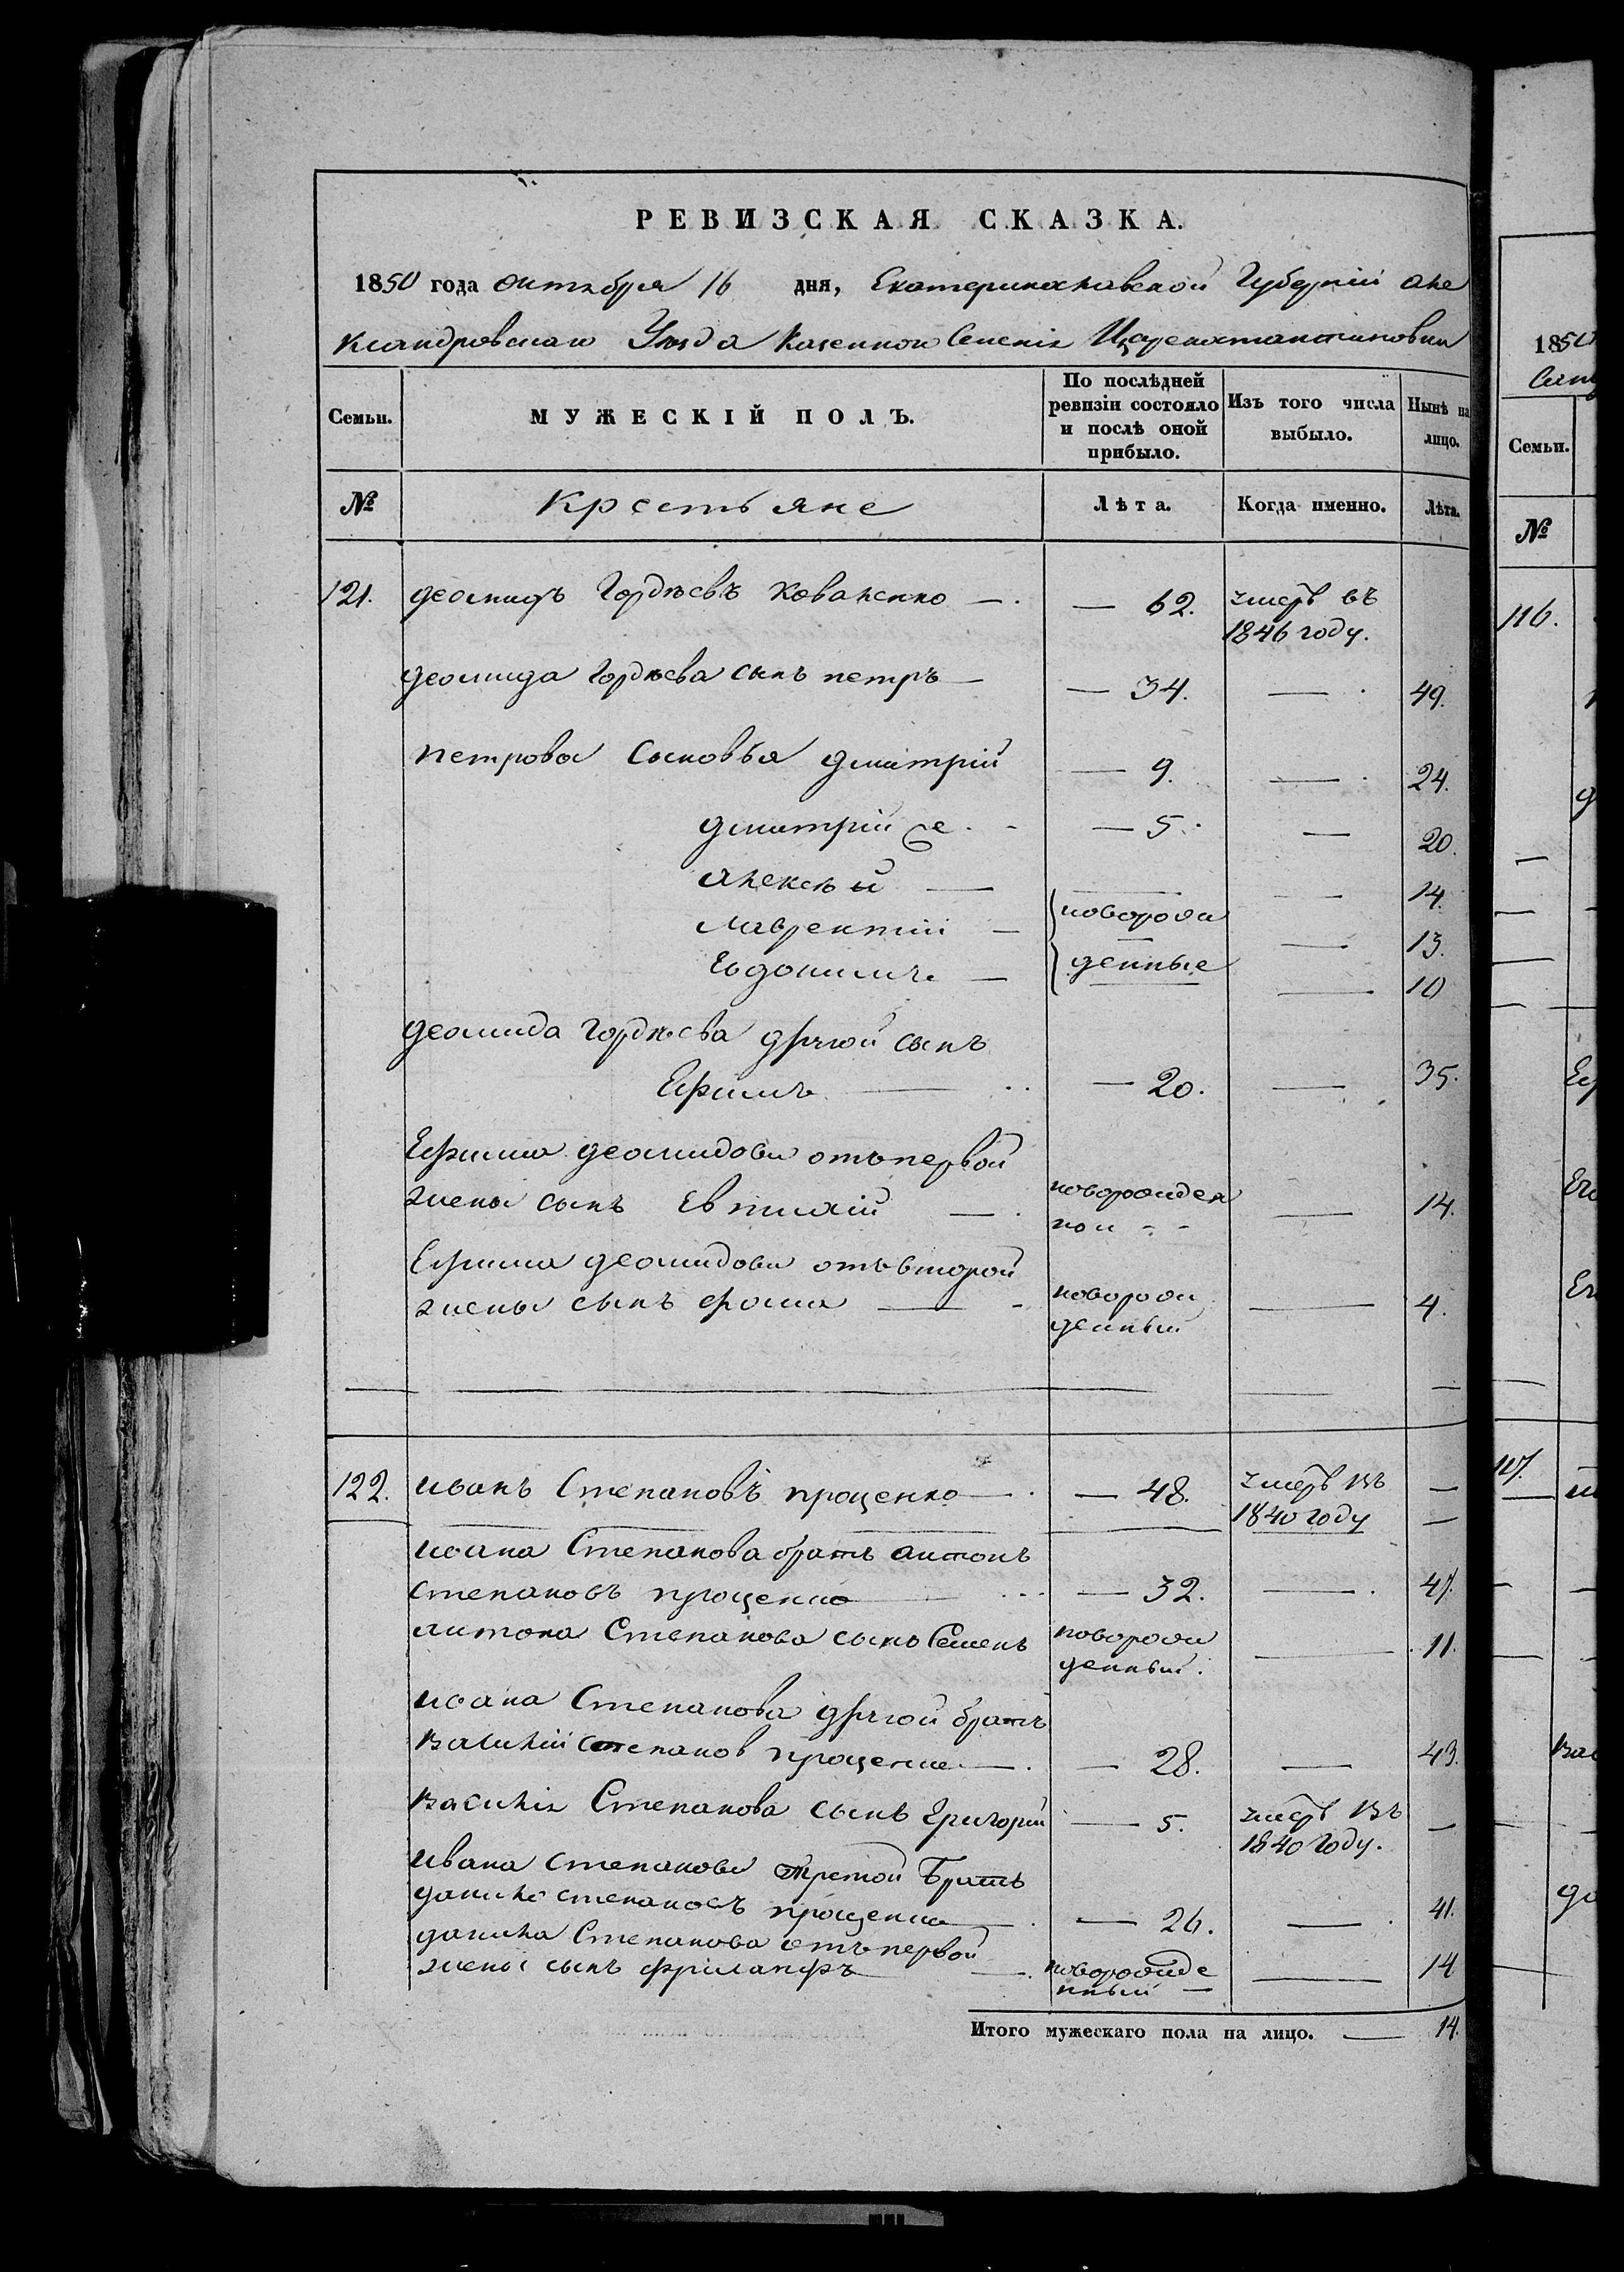 РЕВИЗСКАЯ СКАЗКА.
1850 года октября 16 дня, Екатеринославской Губерніи Але
ксандровскаго Уѣзда Казенном Селеніи Цареконстантиновки
Семьи.
МУЖЕСКІЙ ПОЛЪ.
По послѣдней ревизіи состояло и послѣ оной прибыло.
Изъ того числа выбыло.
Нынѣ на лицо.
№ Крестьяне Лѣта. Когда именно. Лѣта.
121. Деомидъ Гордѣевъ Коваленко — 62. умерѣ въ
1846 году.
Деомида Гордѣева сынъ петръ — 34. — 49.
петрова Сыновья дмитрій — 9. — 24.
дмитрій 2е — 5. — 20.
Алексѣй — — 14.
новорож
лаврентій — — 13.
денные
Евдокимъ — — 10
деомида Гордѣева другой сынъ
Ефимъ — 20. — 35.
Ефима деомидова отъ первой
жены сынъ Евтихій — новорожден — 14.
ной
Ефима деомидова отъ второй
жены сынъ фома — новорож — 4.
денный
122. иванъ Степановъ проценко — 48. умерѣ въ —
1840 году —
ивана Степанова братъ антонъ
степановъ проценко — 32. — 47.
антона Степанова сынъ Семенъ новорож — 11.
денный.
ивана Степанова другой братъ
василий степанов проценко — 28. — 43.
василія Степанова сынъ Григорій — 5. умерѣ въ —
1840 году.
ивана степанова третой Братъ
данило степановъ проценко — 26. — 41.
данила Степанова отъ первой
жены сынъ филапфъ — новорожде — 14
нный —
Итого мужескаго пола на лицо. — 14.
1850
Семьи.
№
116.
117.